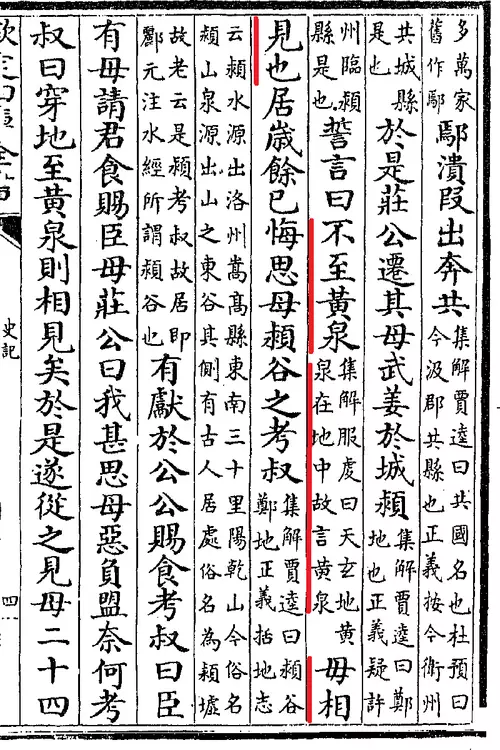 多萬家舊作鄢鄢潰段出奔共集解賈逵曰共國名也杜預曰今汲郡共縣也正義按今衛州
共城縣是也於是莊公遷其母武姜於城潁集解賈逵曰鄭地也正義疑許
州臨潁縣是也誓言曰不至黃泉集解服虔曰天玄地黃泉在地中故言黃泉毋相
見也居歲餘已悔思母潁谷之考叔集解賈逵曰潁谷鄭地正義括地志
云潁水源出洛州嵩高縣東南三十里陽乾山今俗名
潁山泉源出山之東谷其側有古人居處俗名為潁墟
故老云是潁考叔故居即酈元注水經所謂潁谷也有獻於公公賜食考叔曰臣
有母請君食賜臣母莊公曰我甚思母惡負盟奈何考
叔曰穿地至黃泉則相見矣於是遂從之見母二十四
史記
四